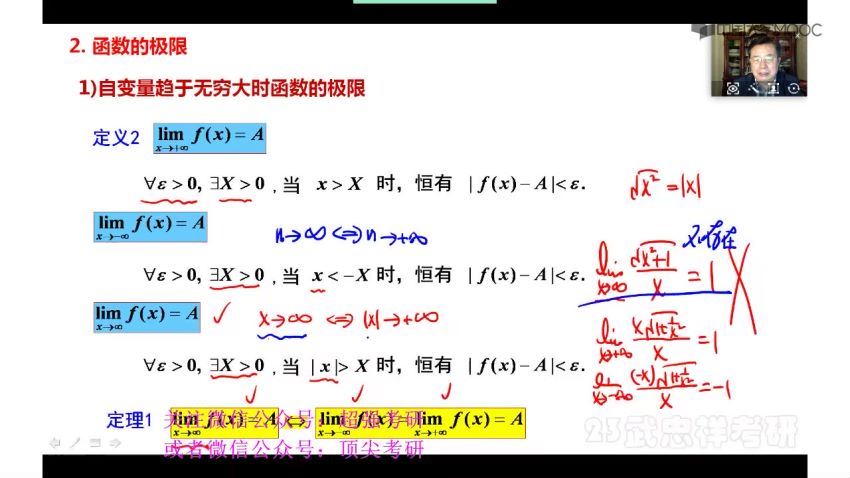 2. 函数的极限
1)自变量趋于无穷大时函数的极限
定义2 lim f(x) = A
x→+∞
∀ε > 0, ∃X > 0 , 当 x > X 时，恒有 | f(x) − A |< ε.
√x² = |x|
lim f(x) = A
x→−∞
n→∞ ⇔ n→+∞
不存在
∀ε > 0, ∃X > 0 , 当 x < −X 时，恒有 | f(x) − A |< ε.
lim √x²+1 / x = 1
x→∞
lim f(x) = A
x→∞
x→∞ ⇔ |x|→+∞
lim x√1+1/x² / x = 1
x→+∞
∀ε > 0, ∃X > 0 , 当 | x |> X 时，恒有 | f(x) − A |< ε.
lim (-x)√1+1/x² / x = -1
x→-∞
定理1 lim f(x) = A ⇔ lim f(x) = lim f(x) = A
x→∞ x→−∞ x→+∞
关注微信公众号：超强考研
或者微信公众号：顶尖考研
23武忠祥考研